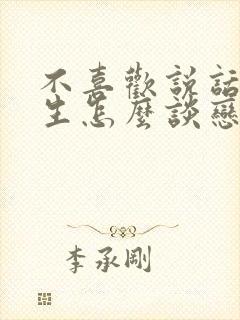 不喜歡説話
生怎麼談戀
李承剛